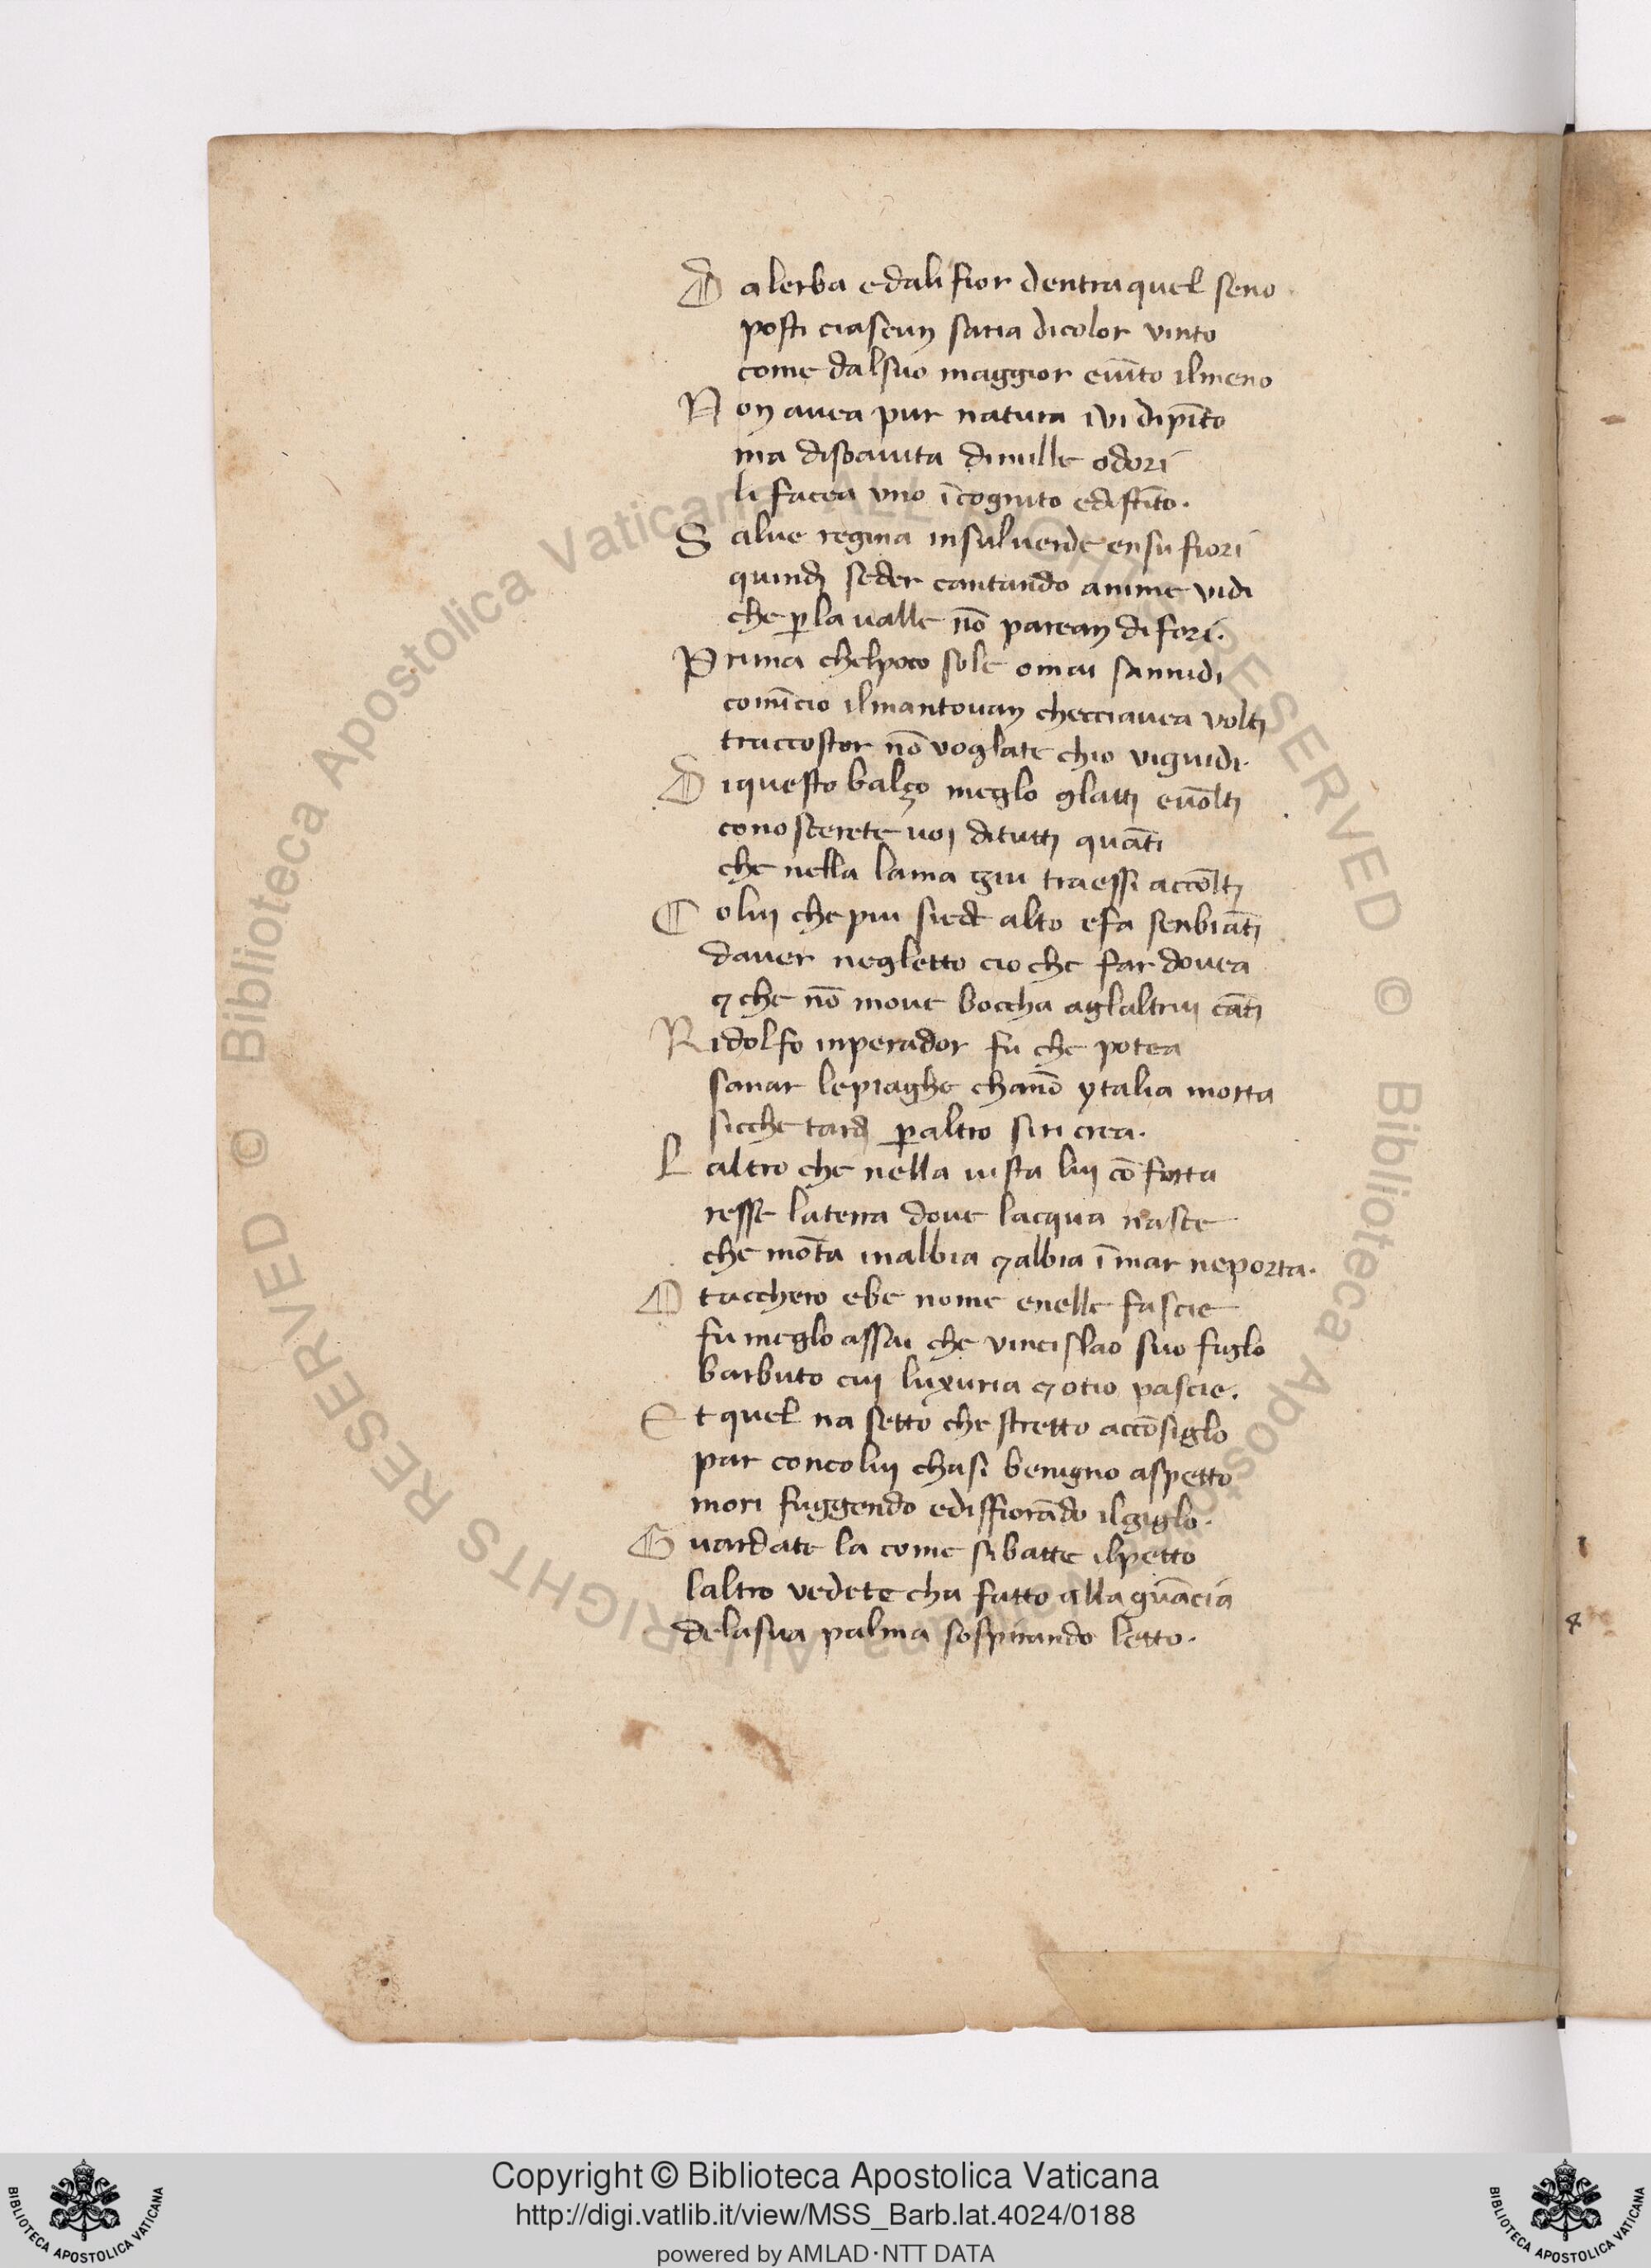 D alerba edali fior dentra quel seno
posti ciascun saria dicolor vinto
come dalsuo maggior euīto ilmeno
N on auea pur natura iui dipīto
ma disoauita dimille odori
li facea vno īcognito edistīto.
S alue regina insuluerde ensu fiori
quindi seder cantando anime vidi
che ꝑla ualle nō parean di fori.
P rima chelpoco sole omai sannidi
comīcio ilmantouan checciauea volti
traccostor nō voglate chio viguidi.
D iquesto balço meglo glatti euolti
conoscerete uoi ditutti quāti
che nella lama giu traessi accolti
C olui che piu siede alto efa senbiāti
dauer negletto cio che far douea
⁊ che nō moue boccha aglaltrui cāti
Ridolfo inperador fu che potea
sanar lepiaghe channo ytalia morta
sicche tardi ꝑaltro siri crea.
L altro che nella uista lui cōforta
resse laterra doue lacqua nasce
che mōta inalbia ⁊albia ī mar neporta.
O tacchero ebe nome enelle fascie
fu meglo assai che vincislao suo figlo
barbuto cui luxuria ⁊otio pascie.
E t quel nasetto che stretto accōsiglo
par concolui chasi benigno aspetto
mori fuggendo edisfiorādo ilgiglo.
G uardate la come sibatte ilpetto
laltro vedete cha fatto alla guācia
delasua palma sospirando letto.
© Biblioteca Apostolica Vaticana ALL RIGHTS RESERVED
© Biblioteca Apostolica Vaticana ALL RIGHTS RESERVED
Copyright © Biblioteca Apostolica Vaticana
http://digi.vatlib.it/view/MSS_Barb.lat.4024/0188
powered by AMLAD·NTT DATA
BIBLIOTECA APOSTOLICA VATICANA
BIBLIOTECA APOSTOLICA VATICANA